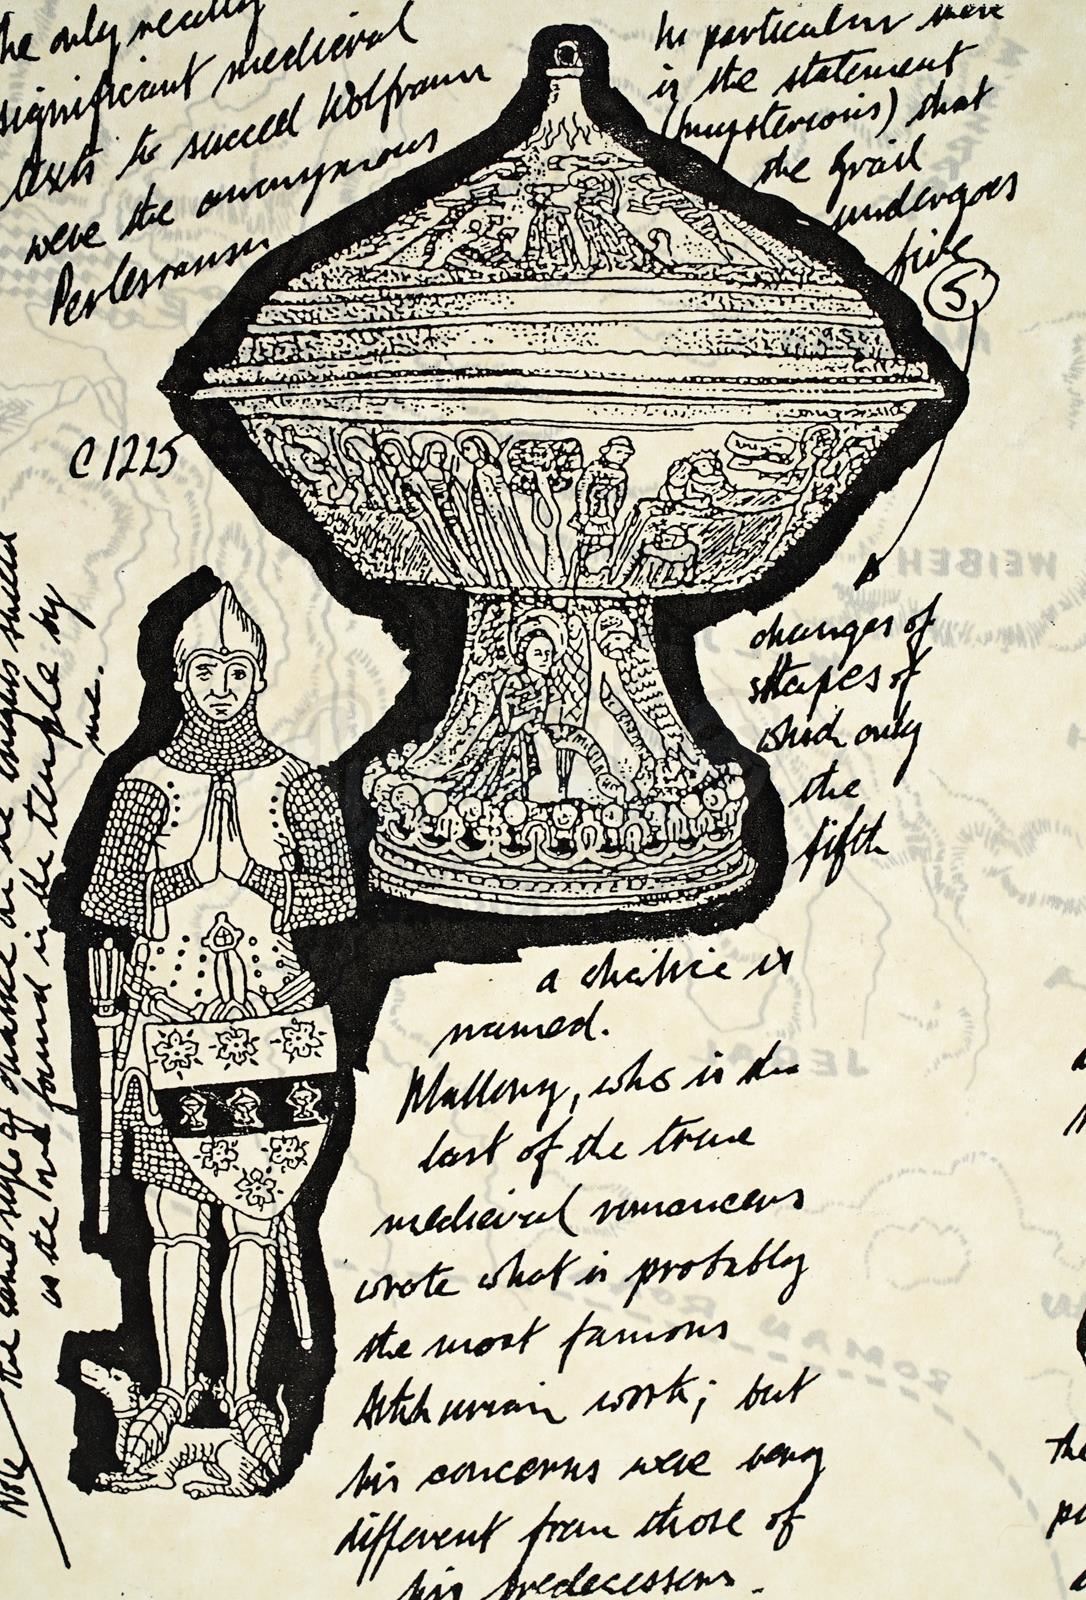 the only really
significant medieval
texts to succeed Wolfram
were the anonymous
Perlesvaus
C1225
In particular were
is the statement
(mysterious) that
the Grail
undergoes
five
5
changes of
shapes of
which only
the
fifth
a chalice is
named.
Mallory, who is the
last of the true
medieval romancers
wrote what is probably
the most famous
Arthurian work; but
his concerns were very
different from those of
his predecessors.
Note the same style of chalice on the knights shield
as the one found in the temple by
me.
WEIBEH
JEDAL
ROMAN ROA
the